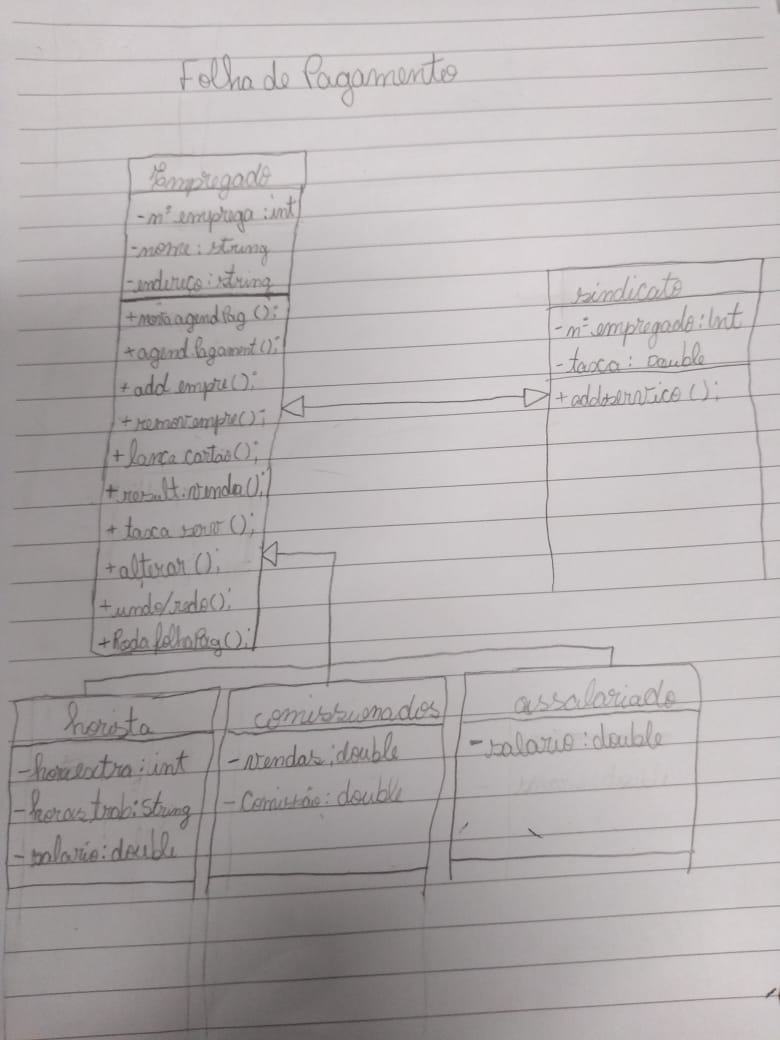 Folha de Pagamento
Empregado
-nº emprega:int
-nome:string
-endereço:string
+agendPagament();
+add empre();
+remover empre();
+lança cartão();
+result.venda();
+taxa serv();
+alterar();
+undo/redo();
+RodafolhaPag();
sindicato
-nº empregado:Int
-taxa: Double
+addservico();
horista
-horaextra:int
-horas trab:String
-salario:double
comissionados
-vendas:double
-Comissão:double
assalariado
-salario:double